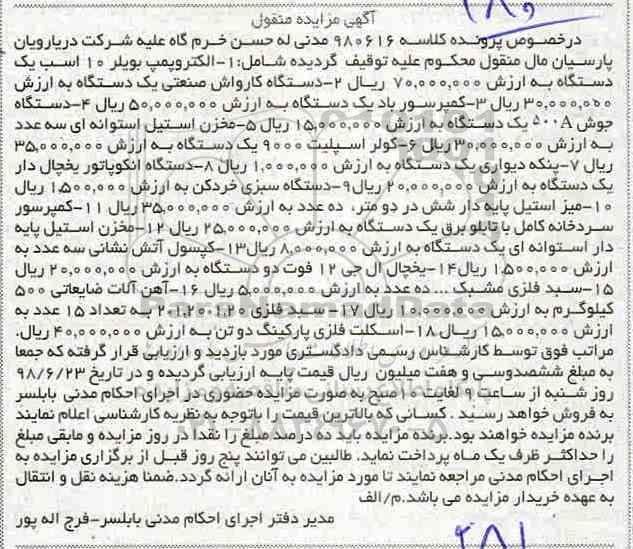 ۲۸۰
آگهی مزایده منقول
درخصوص پرونده کلاسه ۹۸۰۶۱۶ مدنی له حسن خرم گاه علیه شرکت دریارویان
پارسیان مال منقول محکوم علیه توقیف گردیده شامل:۱-الکتروپمپ بویلر ۱۰ اسب یک
دستگاه به ارزش ۷۰,۰۰۰,۰۰۰ ریال ۲-دستگاه کارواش صنعتی یک دستگاه به ارزش
۳۰,۰۰۰,۰۰۰ ریال ۳-کمپرسور باد یک دستگاه به ارزش ۵۰,۰۰۰,۰۰۰ ریال ۴-دستگاه
جوش ۵۰۰A یک دستگاه به ارزش ۱۵,۰۰۰,۰۰۰ ریال ۵-مخزن استیل استوانه ای سه عدد
به ارزش ۳۰,۰۰۰,۰۰۰ ریال ۶-کولر اسپلیت ۹۰۰۰ یک دستگاه به ارزش ۳۵,۰۰۰,۰۰۰
ریال ۷-پنکه دیواری یک دستگاه به ارزش ۱,۰۰۰,۰۰۰ ریال ۸-دستگاه انکوپاتور یخچال دار
یک دستگاه به ارزش ۲۰,۰۰۰,۰۰۰ ریال۹-دستگاه سبزی خردکن به ارزش ۱,۵۰۰,۰۰۰ ریال
۱۰-میز استیل پایه دار شش در دو متر، ده عدد به ارزش ۳۵,۰۰۰,۰۰۰ ریال ۱۱-کمپرسور
سردخانه کامل با تابلو برق یک دستگاه به ارزش ۲۵,۰۰۰,۰۰۰ ریال ۱۲-مخزن استیل پایه
دار استوانه ای یک دستگاه به ارزش ۸,۰۰۰,۰۰۰ ریال۱۳-کپسول آتش نشانی سه عدد به
ارزش ۱,۵۰۰,۰۰۰ ریال۱۴-یخچال ال جی ۱۲ فوت دو دستگاه به ارزش ۲۰,۰۰۰,۰۰۰ ریال
۱۵-سبد فلزی مشبک ... ده عدد به ارزش ۵,۰۰۰,۰۰۰ ریال ۱۶-آهن آلات ضایعاتی ۵۰۰
کیلوگرم به ارزش ۱۰,۰۰۰,۰۰۰ ریال ۱۷- سبد فلزی به تعداد ۱۵ عدد به
ارزش ۱۵,۰۰۰,۰۰۰ ریال ۱۸-اسکلت فلزی پارکینگ دو تن به ارزش ۴۰,۰۰۰,۰۰۰ ریال.
مراتب فوق توسط کارشناس رسمی دادگستری مورد بازدید و ارزیابی قرار گرفته که جمعا
به مبلغ ششصدوسی و هفت میلیون ریال قیمت پایه ارزیابی گردیده و در تاریخ ۹۸/۶/۲۳
روز شنبه از ساعت ۹ لغایت ۱۰ صبح به صورت مزایده حضوری در اجرای احکام مدنی بابلسر
به فروش خواهد رسید . کسانی که بالاترین قیمت را باتوجه به نظریه کارشناسی اعلام نمایند
برنده مزایده خواهند بود.برنده مزایده باید ده درصد مبلغ را نقدا در روز مزایده و مابقی مبلغ
را حداکثر ظرف یک ماه پرداخت نماید. طالبین می توانند پنج روز قبل از برگزاری مزایده به
اجرای احکام مدنی مراجعه نمایند تا مورد مزایده به آنان ارائه گردد.ضمنا هزینه نقل و انتقال
به عهده خریدار مزایده می باشد.م/الف
مدیر دفتر اجرای احکام مدنی بابلسر-فرج اله پور
۲۸۱